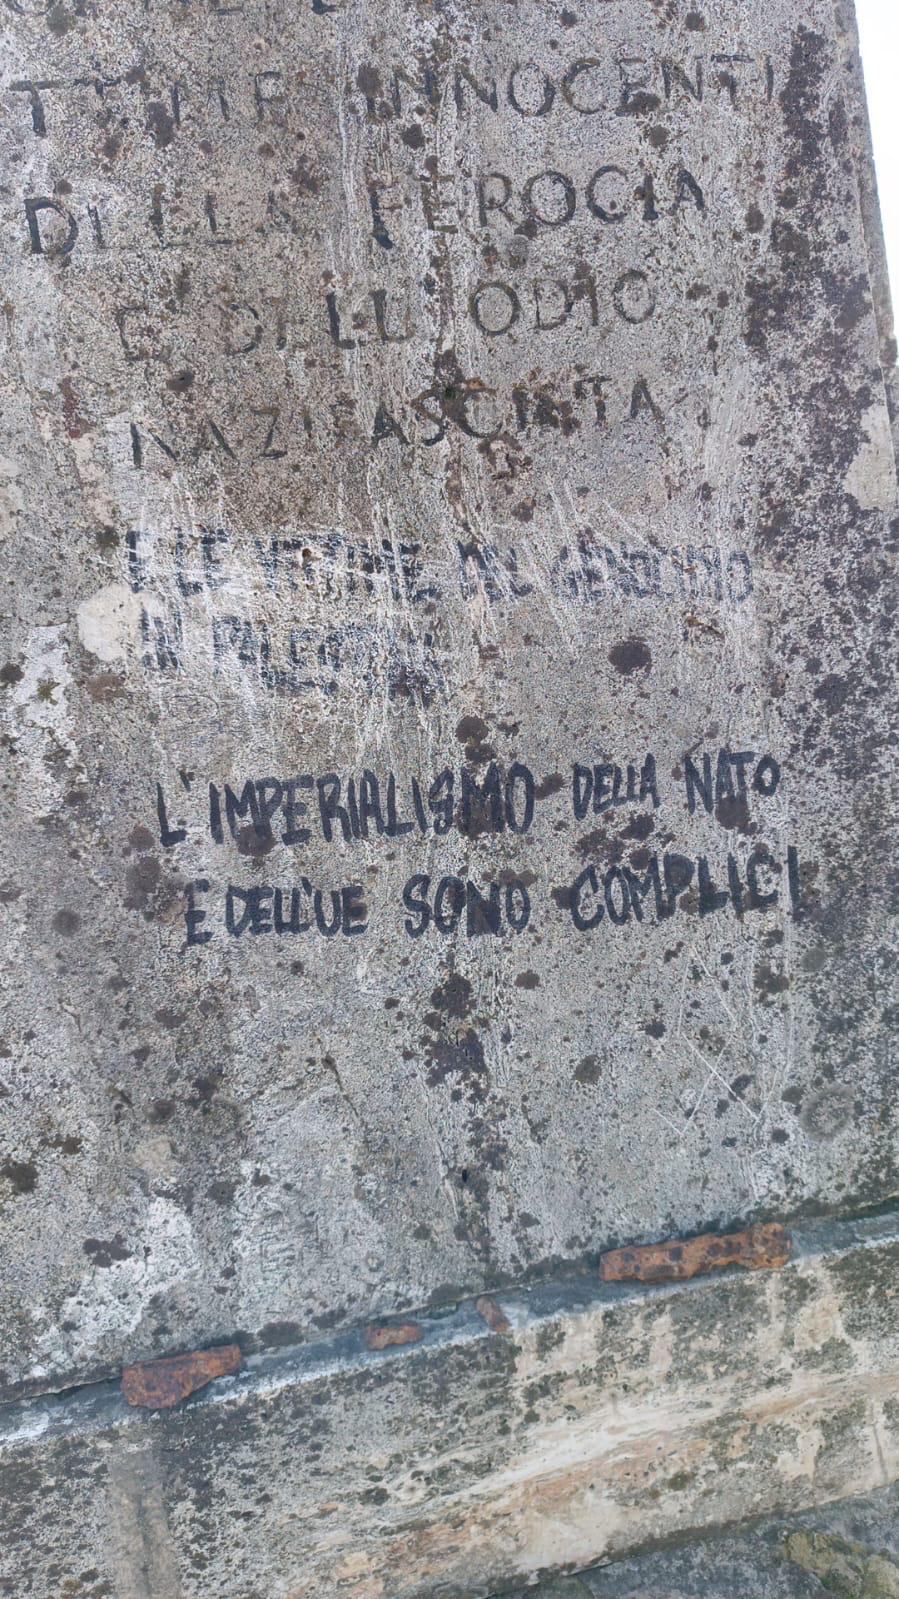 INNOCENTI
DELLA FEROCIA
E DELL'ODIO
NAZIFASCISTA
E LE VITTIME DEL GENOCIDIO
IN PALESTINA
L'IMPERIALISMO DELLA NATO
E DELL'UE SONO COMPLICI